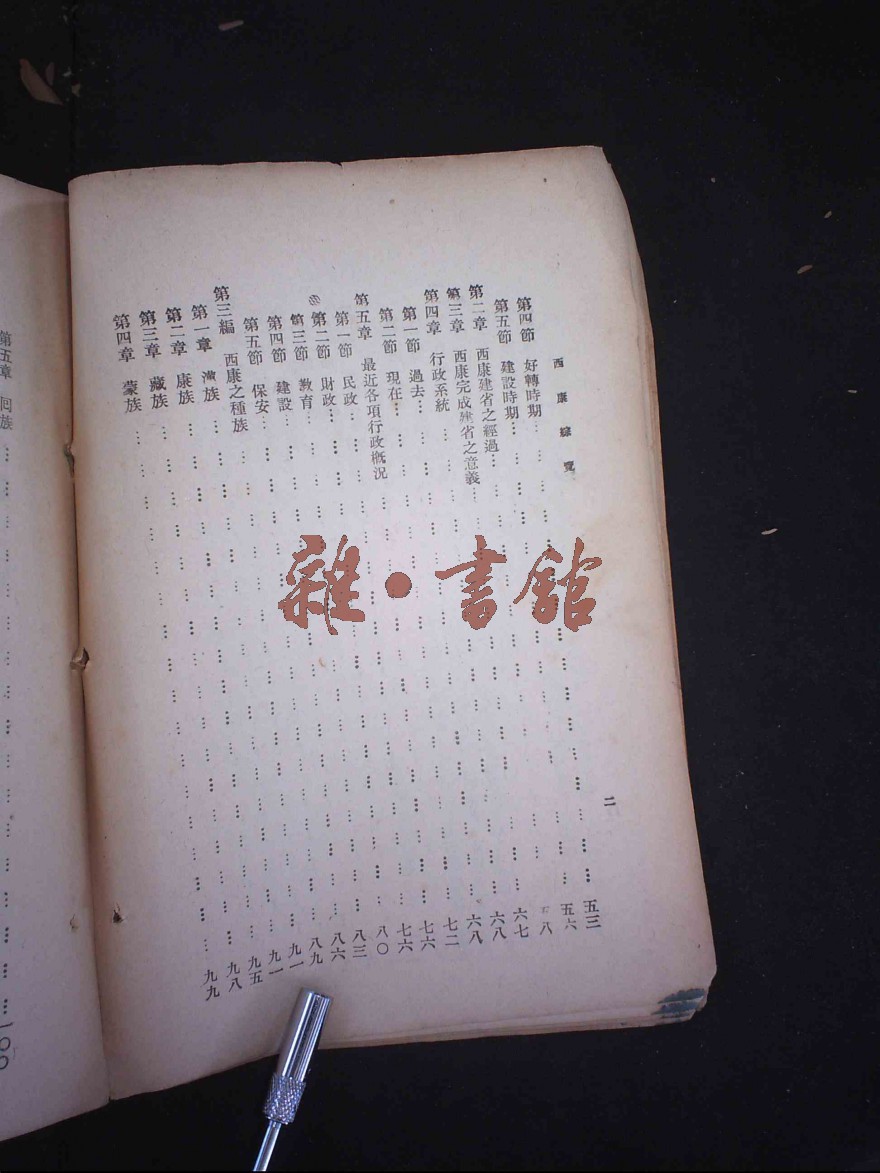 西康綜覽 二
第四節 好轉時期…………五三
第五節 建設時期…………五六
第二章 西康建省之經過…………八
第三章 西康完成建省之意義…………六七
第四章 行政系統…………六八
第一節 過去…………六八
第二節 現在…………七二
第五章 最近各項行政概況…………七六
第一節 民政…………七六
第二節 財政…………八〇
第三節 教育…………八三
第四節 建設…………八六
第五節 保安…………八九
第三編 西康之種族…………九一
第一章 漢族…………九一
第二章 康族…………九五
第三章 藏族…………九八
第四章 蒙族…………九九
第五章 回族…………一〇〇
雜·書館